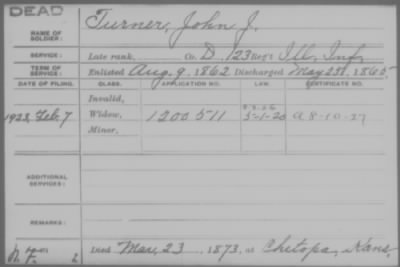 DEAD
NAME OF SOLDIER: Turner, John J.
SERVICE: Late rank, Co. D, 123 Reg't Ill. Inf.
TERM OF SERVICE: Enlisted Aug. 9, 1862 Discharged May 23, 1865
DATE OF FILING. CLASS. APPLICATION NO. LAW. CERTIFICATE NO.
Invalid,
1923, Feb. 7 Widow, 1200511 5-1-20 A 8-10-27
Minor,
ADDITIONAL SERVICES:
REMARKS:
N. F. 2 Died Mar. 23, 1873, at Chetopa, Kans.